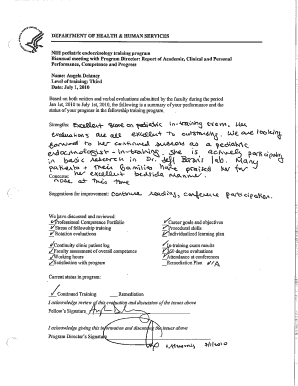 DEPARTMENT OF HEALTH & HUMAN SERVICES
NIH pediatric endocrinology training program
Biannual meeting with Program Director: Report of Academic, Clinical and Personal
Performance, Competence and Progress
Name: Angela Delaney
Level of training: Third
Date: July 1, 2010
Based on both written and verbal evaluations submitted by the faculty during the period
Jan 1st, 2010 to July 1st, 2010, the following is a summary of your performance and the
status of your program in the fellowship training program:
Strengths: Excellent score on pediatric in-training exam. Her
evaluations are all excellent to outstanding. We are looking
forward to her continued success as a pediatric
endocrinologist-in-training. She is actively participating
in basic research in Dr. Jeff Baron's lab. Many
patients & their families have praised her for
her excellent bedside manner.
Concerns:
none at this time
Suggestions for improvement: Continue reading, conference participation.
We have discussed and reviewed:
Professional Competence Portfolio
Career goals and objectives
Stress of fellowship training
Procedural skills
Rotation evaluations
Individualized learning plan
Continuity clinic patient log
In-training exam results
Faculty assessment of overall competence
360-degree evaluations
Working hours
Attendance at conferences
Satisfaction with program
Remediation Plan N/A
Current status in program:
Continued Training
Remediation
I acknowledge review of this evaluation and discussion of the issues above
Fellow's Signature
I acknowledge giving this information and discussing the issues above
Program Director's Signature